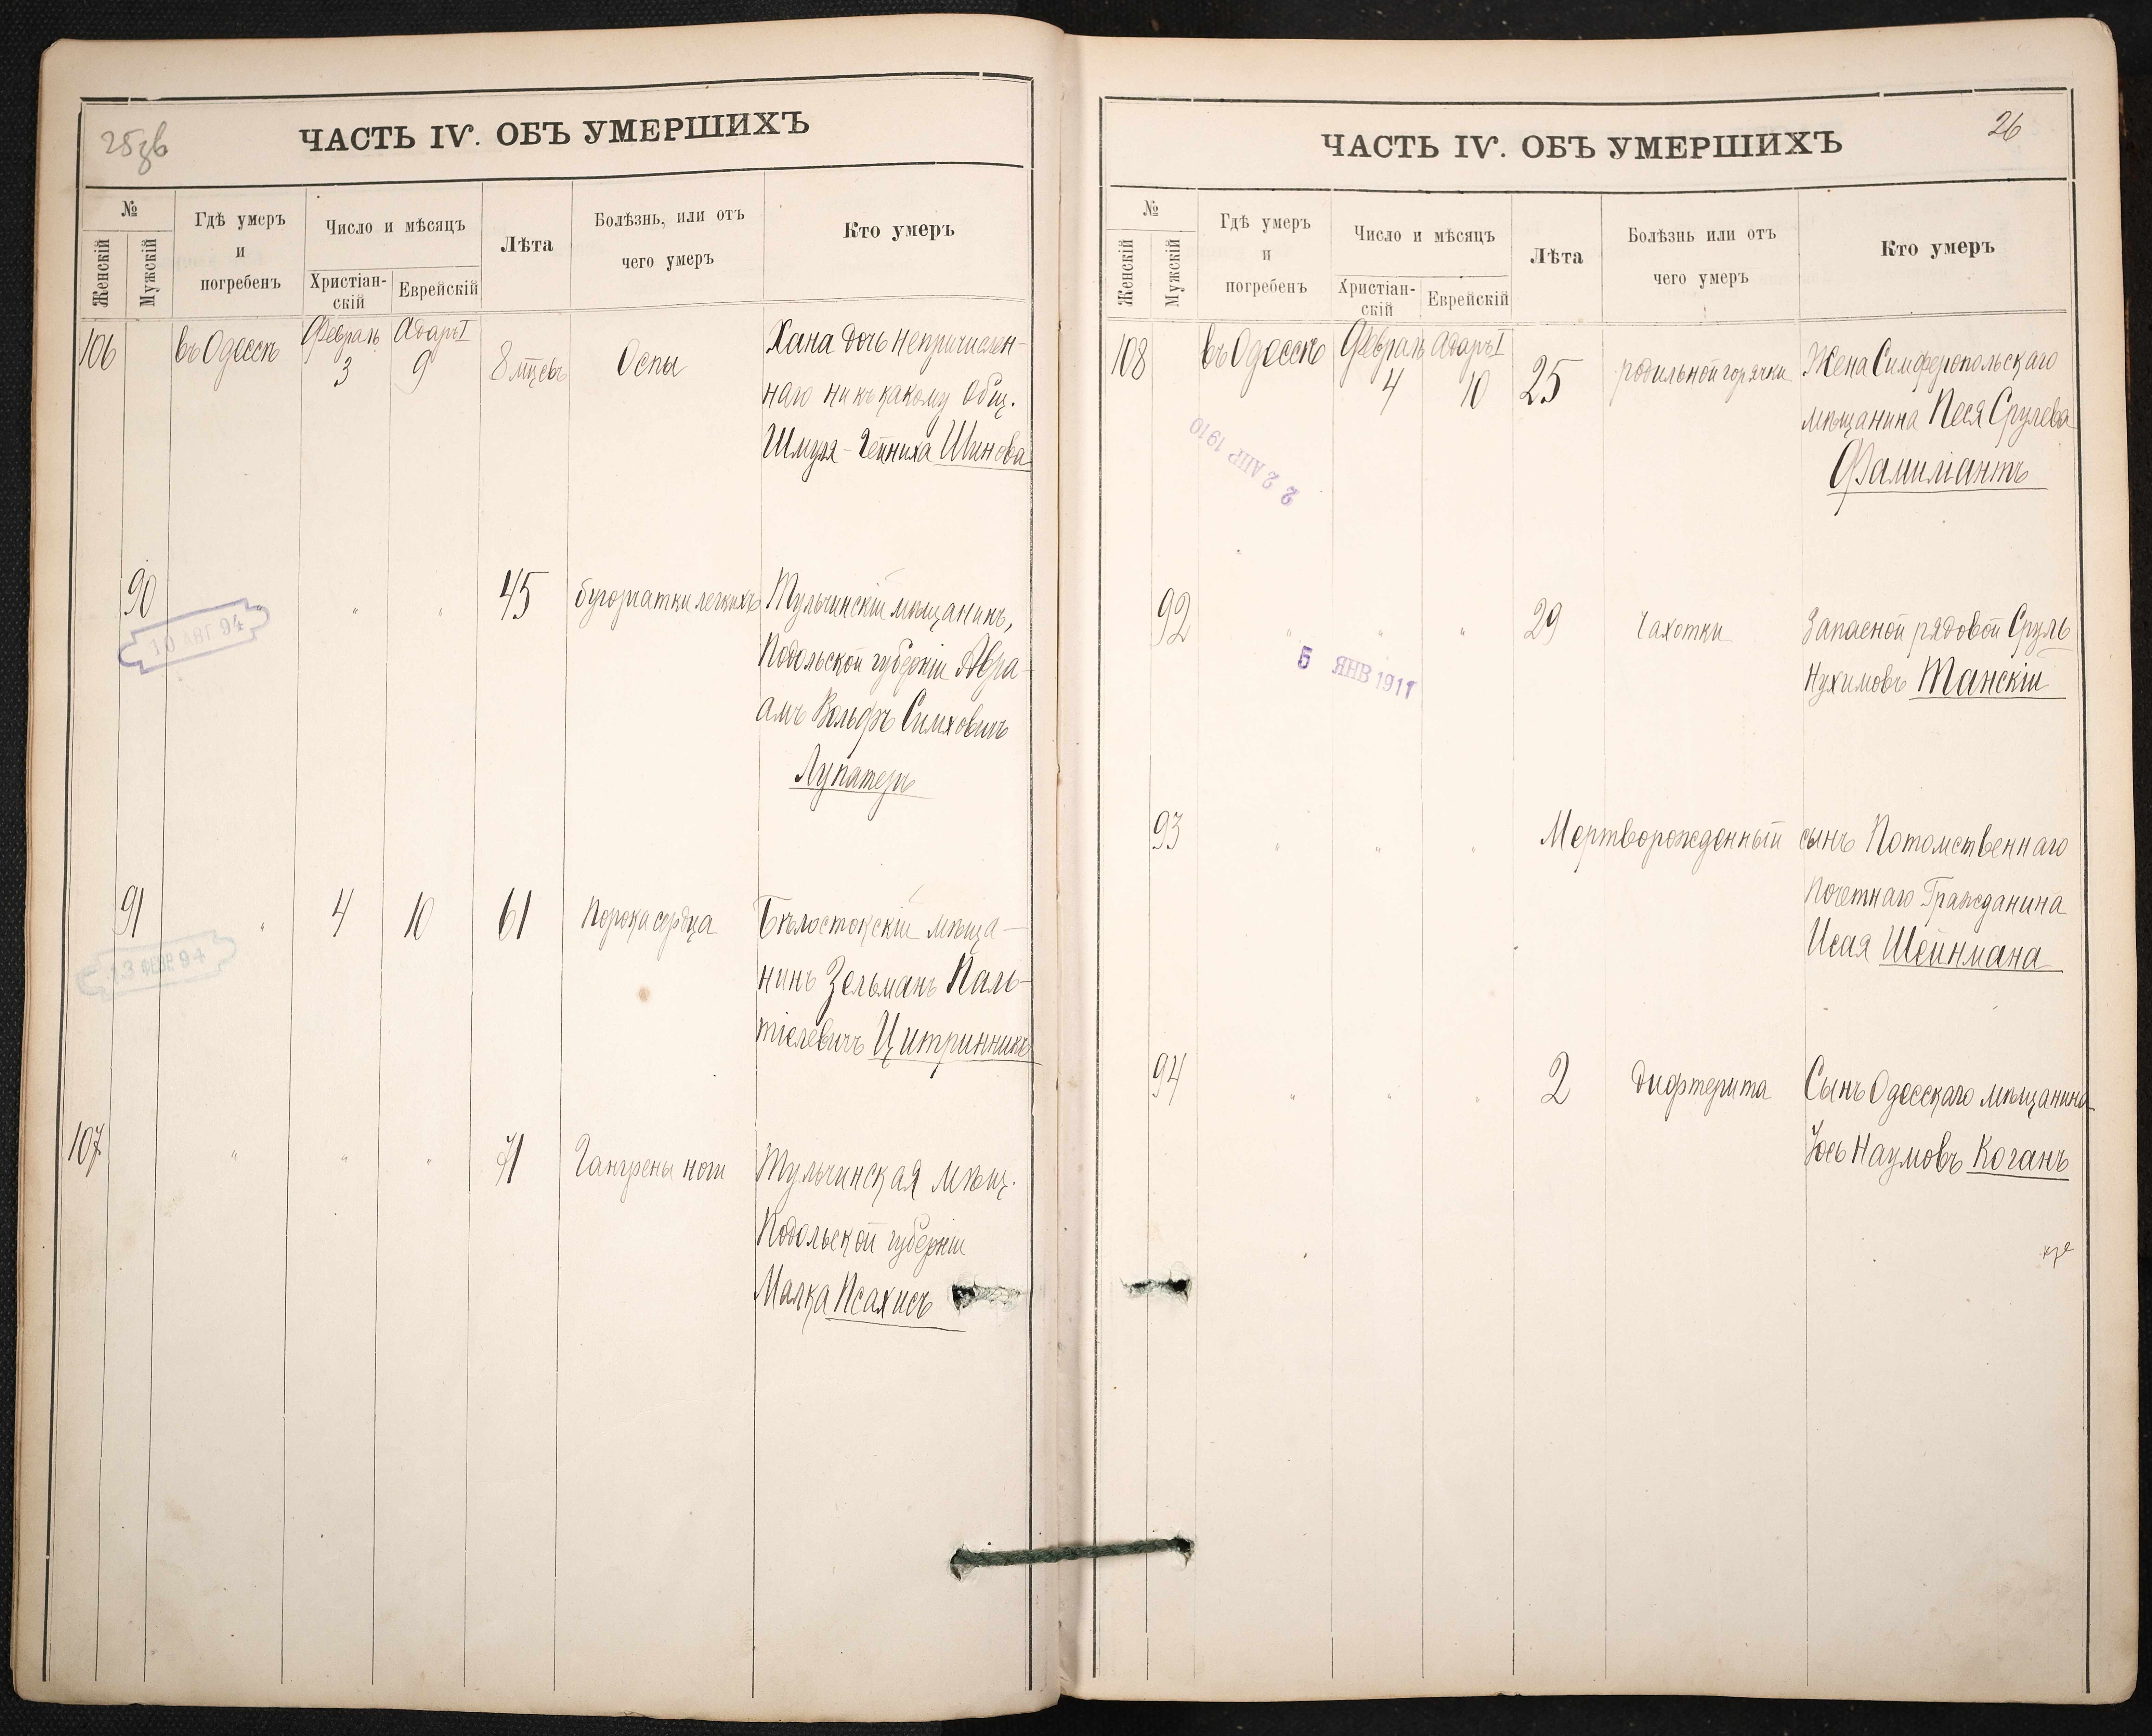 25зв
ЧАСТЬ IV. ОБЪ УМЕРШИХЪ
№
Женскій
Мужскій
Гдѣ умеръ
и
погребенъ
Число и мѣсяцъ
Христіан-
скій
Еврейскій
Лѣта
Болѣзнь, или отъ
чего умеръ
Кто умеръ
106
въ Одессѣ
Февраль
3
Адаръ I
9
8 мцсвъ
Оспы
Хана дочь непричислен-
наго ни къ какому Общ.
Шмуля-Гейниха Шинова
90
"
"
"
45
бугорчатки легкихъ
Тульчинскій мѣщанинъ,
Подольской губерніи Авра-
амъ Вольфъ Симховичъ
Лупатеръ
10 АВГ 94
91
"
4
10
61
Порока сердца
Бѣлостокскій мѣща-
нинъ Зельманъ Паль-
тіелевичъ Цитринникъ
13 ФЕВР 94
107
"
"
"
71
Гангрены ноги
Тульчинская мѣщ.
Подольской губерніи
Малка Псахисъ
26
ЧАСТЬ IV. ОБЪ УМЕРШИХЪ
№
Женскій
Мужскій
Гдѣ умеръ
и
погребенъ
Число и мѣсяцъ
Христіан-
скій
Еврейскій
Лѣта
Болѣзнь или отъ
чего умеръ
Кто умеръ
108
въ Одессѣ
Февраль
4
Адаръ I
10
25
родильной горячки
Жена Симферопольскаго
мѣщанина Песя Срулева
Фамиліантъ
2 2 АПР 1910
92
"
"
"
29
Чахотки
Запасной рядовой Сруль
Нухимовъ Танскій
5 ЯНВ 1911
93
"
"
"
Мертворожденный сынъ Потомственнаго
Почетнаго Гражданина
Исая Шейнмана
94
"
"
"
2
Дифтерита
Сынъ Одесскаго мѣщанина
Іось Наумовъ Коганъ